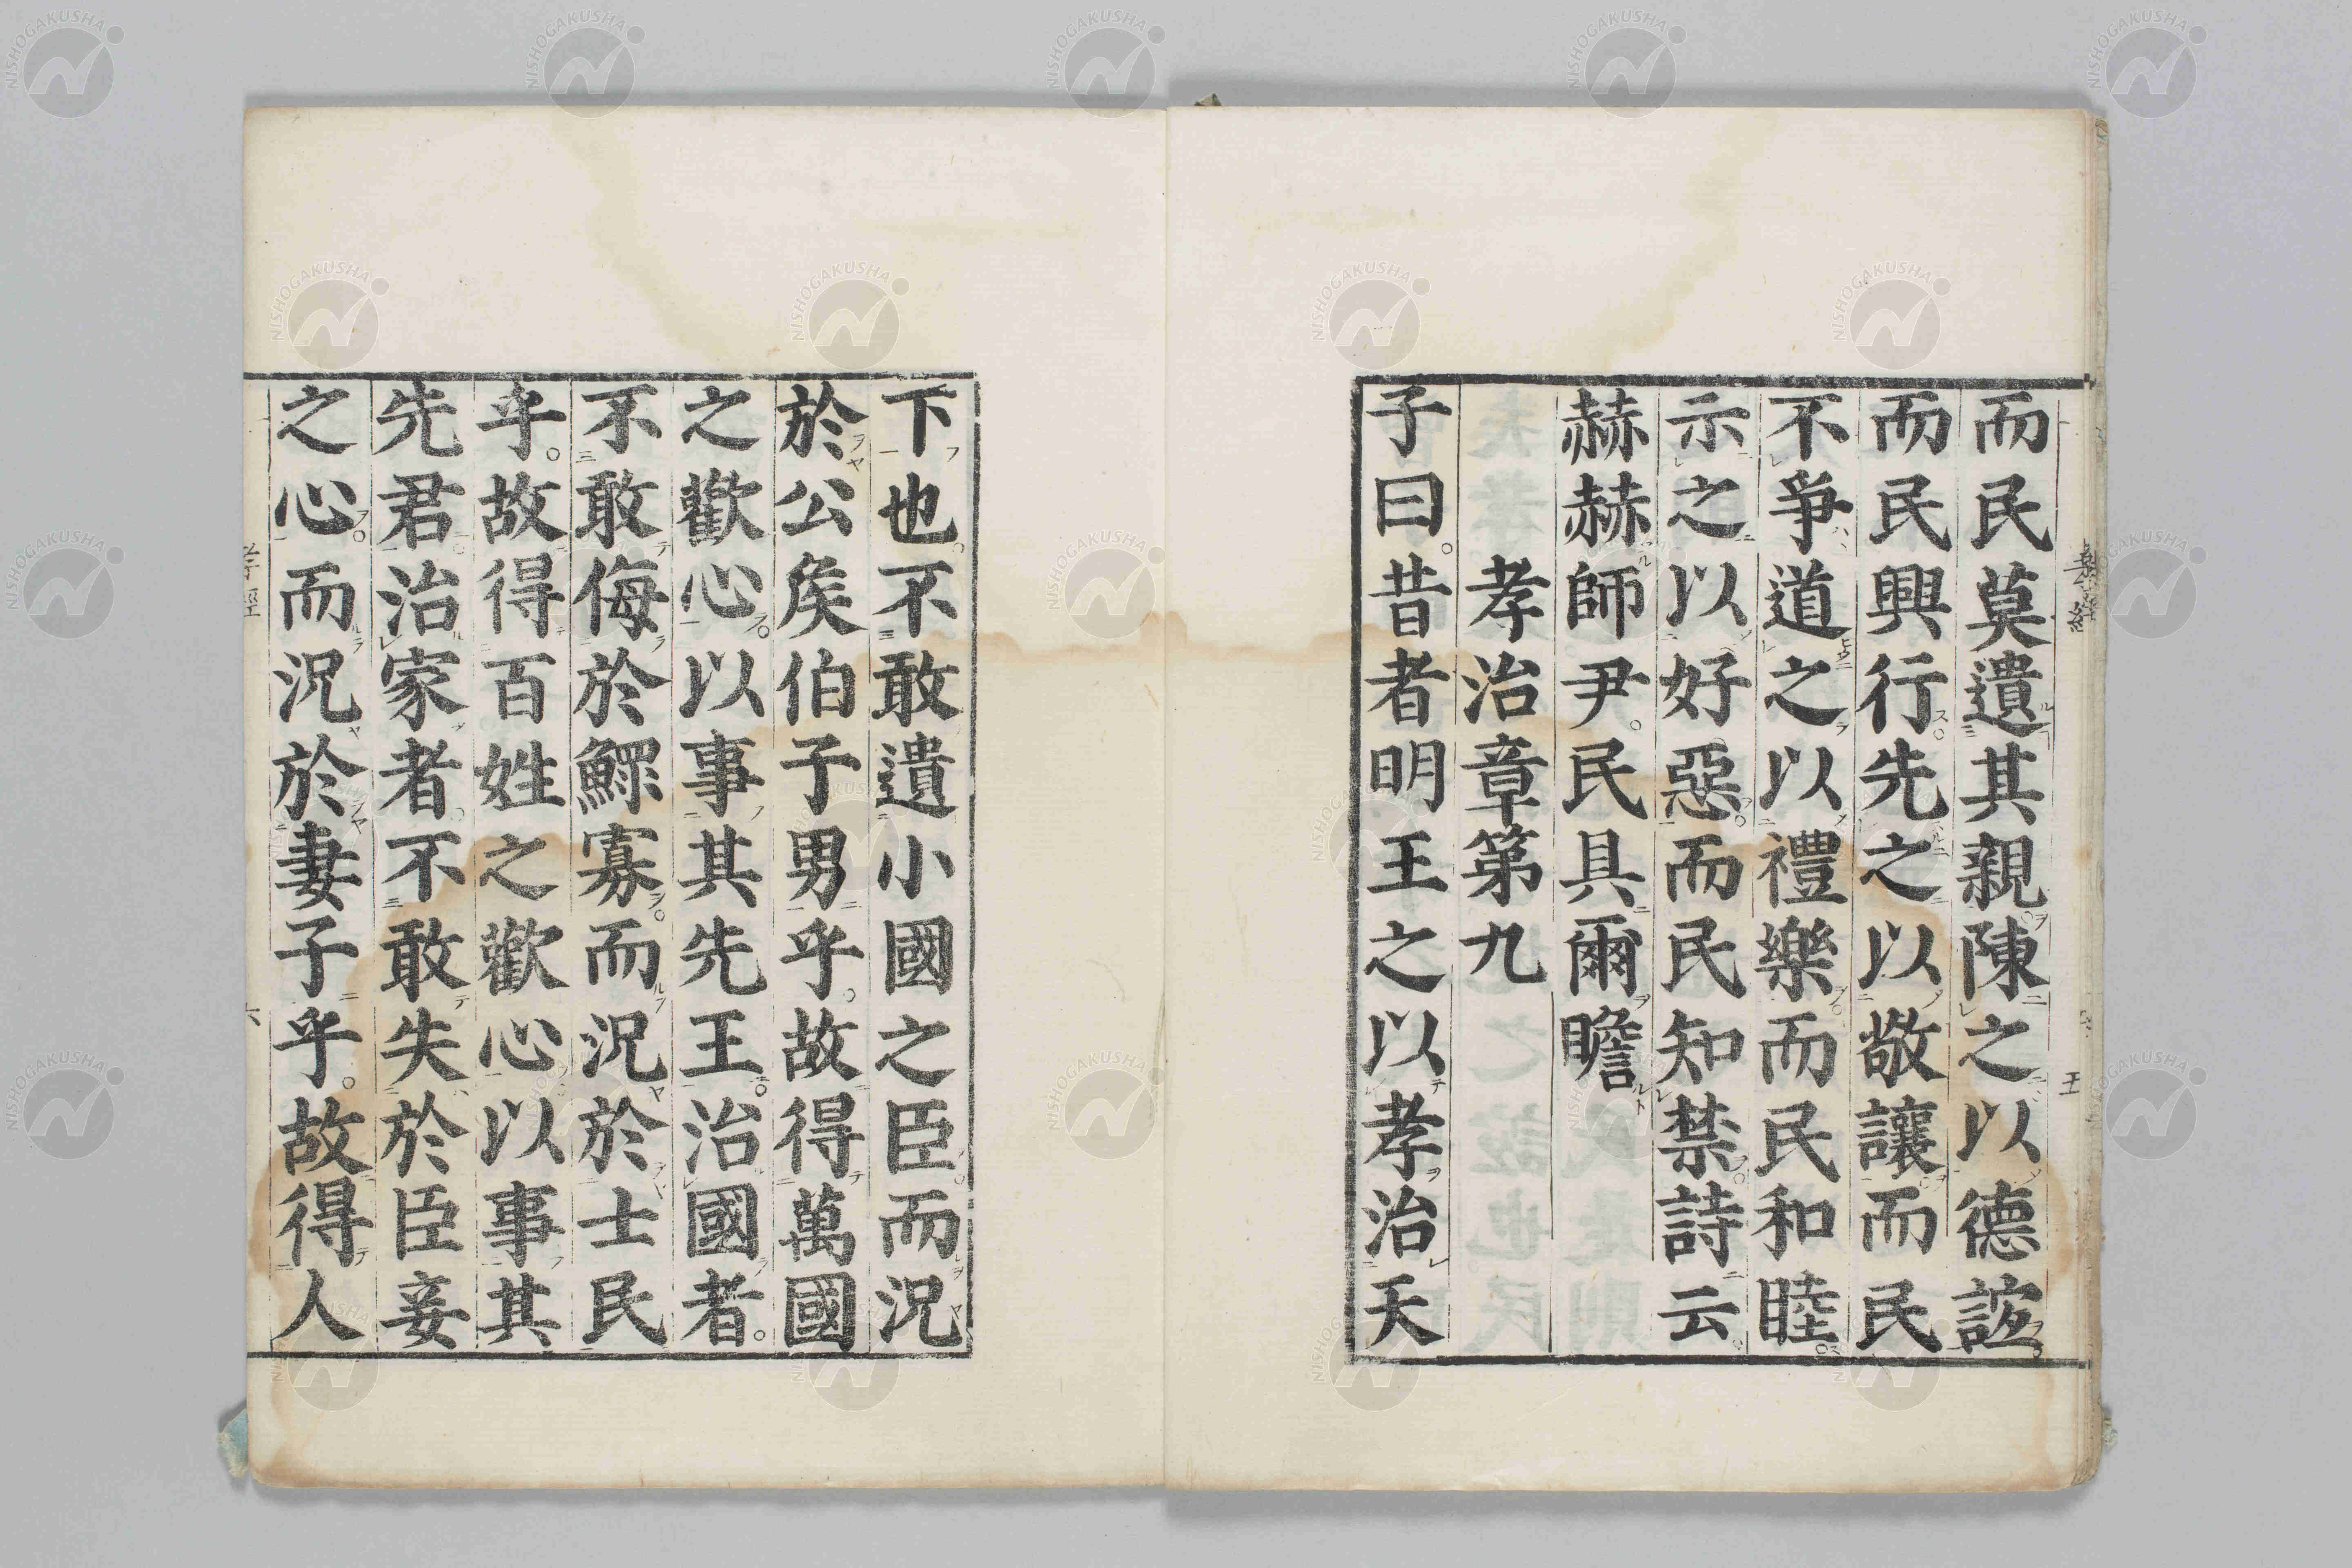 而民莫遺其親陳之以德誼
而民興行先之以敬讓而民
不爭道之以禮樂而民和睦
示之以好惡而民知禁詩云
赫赫師尹民具爾瞻
孝治章第九
子曰昔者明王之以孝治天
下也不敢遺小國之臣而況
於公矦伯子男乎故得萬國
之歡心以事其先王治國者
不敢侮於鰥寡而況於士民
乎故得百姓之歡心以事其
先君治家者不敢失於臣妾
之心而況於妻子乎故得人
NISHOGAKUSHA